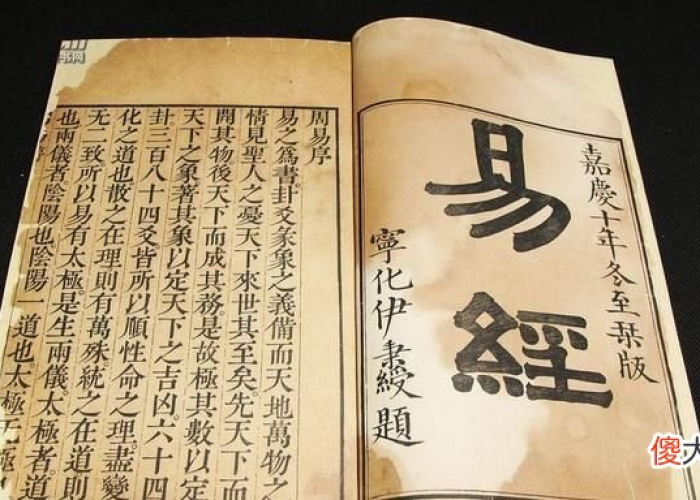 嘉慶十年冬至栞版
易經
寧化伊秉綬題
周易序
易之爲書。卦爻彖象之義備而天地萬物之
情見聖人之憂天下來世其至矣。先天下而
開其物後天下而成其務。是故極其數以定
天下之象著其象以定天下之吉凶。六十四
卦三百八十四爻。皆所以順性命之理。盡變
化之道也。散之在理則有萬殊統之在道則
无二致所以易有太極。是生兩儀。太極者。道
也兩儀者陰陽也。陰陽一道也。太極无極
书网
傻